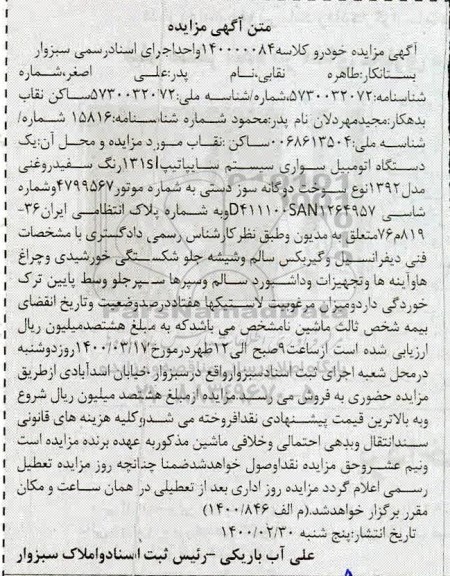 متن آگهی مزایده
آگهی مزایده خودرو کلاسه۱۴۰۰۰۰۰۸۴واحداجرای اسنادرسمی سبزوار
بستانکار:طاهره نقابی،نام پدر:علی اصغر،شماره
شناسنامه:۵۷۳۰۰۳۲۰۷۲،شماره/شناسه ملی:۵۷۳۰۰۳۲۰۷۲ساکن نقاب
بدهکار:مجیدمهردلان نام پدر:محمود شماره شناسنامه:۱۵۸۱۶ شماره/
شناسه ملی:۰۰۶۸۶۱۳۵۰۴ساکن :نقاب مورد مزایده و محل آن:یک
دستگاه اتومبیل سواری سیستم سایپاتیپ۱۳۱slرنگ سفیدروغنی
مدل۱۳۹۲نوع سوخت دوگانه سوز دستی به شماره موتور۴۷۹۹۵۶۷وشماره
شاسی D۴۱۱۱۰۰SAN۱۲۶۴۹۵۷وبه شماره پلاک انتظامی ایران۳۶-
۸۱۹م۷۶متعلق به مدیون وطبق نظرکارشناس رسمی دادگستری با مشخصات
فنی دیفرانسیل وگیربکس سالم وشیشه جلو شکستگی خورشیدی وچراغ
هاوآینه ها وتجهیزات وداشبورد سالم وسپرها سپرجلو وسط پایین ترک
خوردگی داردومیزان مرغوبیت لاستیکها هفتاددرصدوضعیت وتاریخ انقضای
بیمه شخص ثالث ماشین نامشخص می باشدکه به مبلغ هشتصدمیلیون ریال
ارزیابی شده است ازساعت۹صبح الی۱۲ظهردرمورخ۱۴۰۰/۰۳/۱۷روزدوشنبه
درمحل شعبه اجرای ثبت اسنادسبزوارواقع درسبزوار خیابان اسدآبادی ازطریق
مزایده حضوری به فروش می رسد مزایده ازمبلغ هشتصد میلیون ریال شروع
وبه بالاترین قیمت پیشنهادی نقدافروخته می شدوکلیه هزینه های قانونی
سندانتقال وبدهی احتمالی وخلافی ماشین مذکوربه عهده برنده مزایده است
ونیم عشروحق مزایده نقداوصول خواهدشدضمنا چنانچه روز مزایده تعطیل
رسمی اعلام گردد مزایده روز اداری بعد از تعطیلی در همان ساعت و مکان
مقرر برگزار خواهدشد.(م الف ۱۴۰۰/۸۴۶)
تاریخ انتشار:پنج شنبه ۱۴۰۰/۰۲/۳۰
علی آب باریکی -رئیس ثبت اسنادواملاک سبزوار